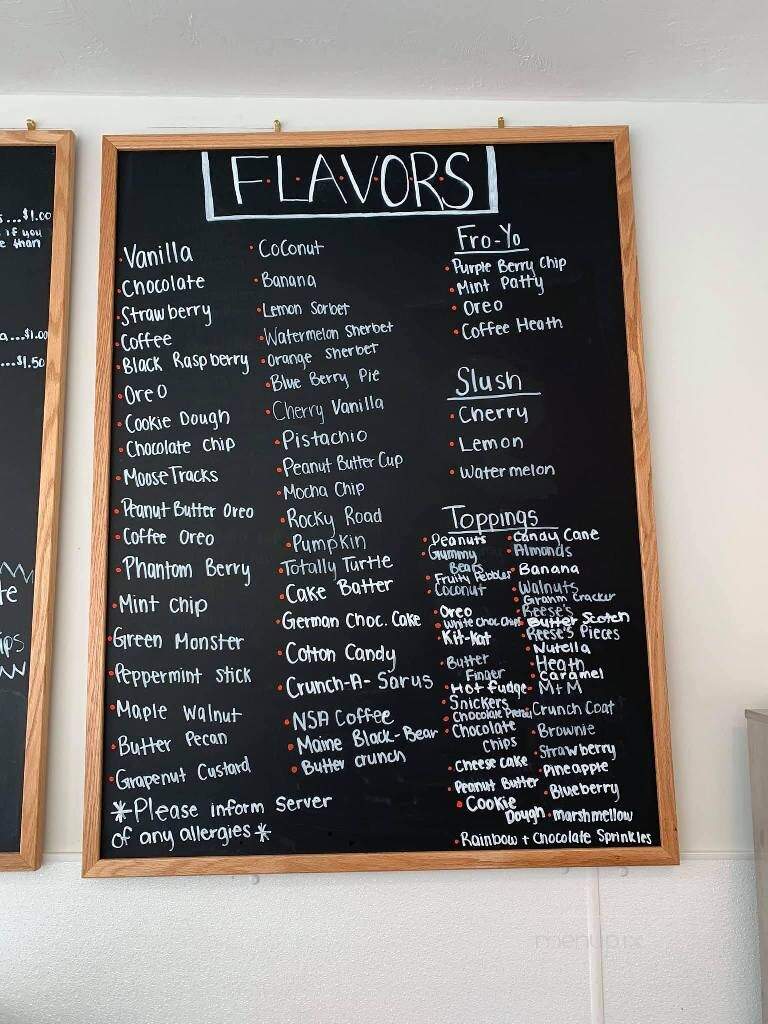 FLAVORS
Vanilla
Chocolate
Strawberry
Coffee
Black Raspberry
Oreo
Cookie Dough
Chocolate Chip
Moose Tracks
Peanut Butter Oreo
Coffee Oreo
Phantom Berry
Mint Chip
Green Monster
Peppermint stick
Maple Walnut
Butter Pecan
Grapenut Custard
*Please inform Server
of any allergies*
Coconut
Banana
Lemon Sorbet
Watermelon Sherbet
Orange Sherbet
Blue Berry Pie
Cherry Vanilla
Pistachio
Peanut Butter Cup
Mocha Chip
Rocky Road
Pumpkin
Totally Turtle
Cake Batter
German Choc. Cake
Cotton Candy
Crunch-A-Sarus
NSA Coffee
Maine Black-Bear
Butter crunch
Fro-Yo
Purple Berry Chip
Mint Patty
Oreo
Coffee Heath
Slush
Cherry
Lemon
Watermelon
Toppings
Peanuts
Gummy
Bears
Fruity Pebbles
Coconut
Oreo
White Choc Chips
Kit-Kat
Butter
Finger
Hot fudge
Snickers
Chocolate Pretzel
Chocolate
Chips
Cheese cake
Peanut Butter
Cookie
Dough
Candy Cane
Almonds
Banana
Walnuts
Graham Cracker
Reese's
Butter Scotch
Reese's Pieces
Nutella
Heath
Caramel
M+M
Crunch Coat
Brownie
Strawberry
Pineapple
Blueberry
marshmellow
Rainbow + Chocolate Sprinkles
...$1.00
if you
than
...$1.00
...$1.50
menupix